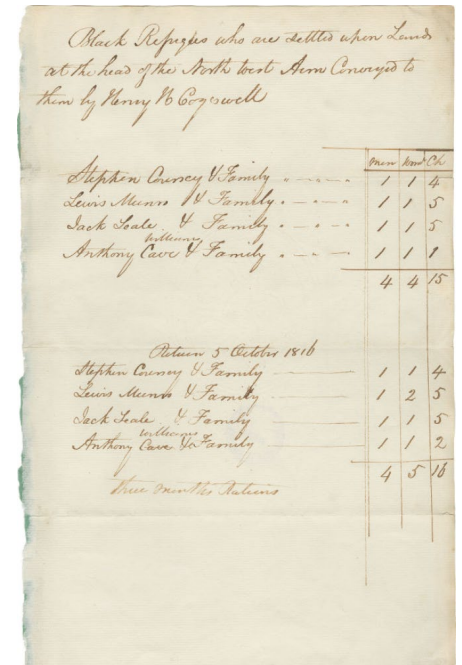 Black Refugees who are settled upon Lands
at the head of the North West Arm Conveyed to
them by Henry H Cogswell
men wom Ch
Stephen Coursey & Family 1 1 4
Lewis Munro & Family 1 1 5
Jack Seale & Family 1 1 5
Williams
Anthony Cave & Family 1 1 1
4 4 15
Return 5 October 1816
Stephen Coursey & Family 1 1 4
Lewis Munro & Family 1 2 5
Jack Seale & Family 1 1 5
Williams
Anthony Cave & Family 1 1 2
4 5 16
three months Rations